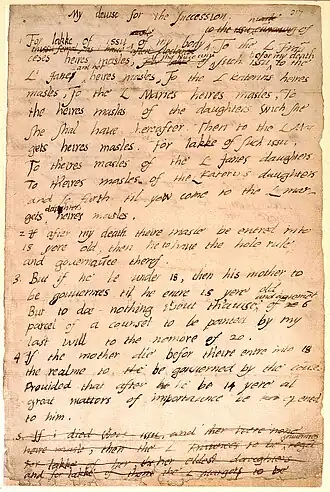 My deuise for the Succession.
217
For lakke of issu masle of my body to the issu
To the L Fran
ceses heires masles, such issu befor my death to the
L' Janes and her heires masles, To the L Katerins heires
masles, To the L Maries heires masles, To
the heires masles of the daughters wich she
she shal haue hereafter. Then to the L Mar
gets heires masles. For lakke of such issu,
To theires masles of the L Janes daughters
To theires masles of the L Katerins daughters
and so forth til yow come to the L Mar
gets daughters heires masles.
2 If after my death theire masle be entred into
18 yere old, then he to haue the hole rule
and gouernaunce therof.
3. But if he be under 18, then his mother to
be gouuernres til he entre 18 yere old
But to doe nothing w'out th'auise and agreement of 6
parcel of a counsel to be pointed by my
last will to the nombre of 20.
4 If the mother die befor th'eire entre into 18
the realme to be gouuerned by the
Prouided that after he be 14 yere al
great matters of importaunce be opened
to him.
5. If i died w'out issu, and ther were none
heire masle, then the L Fraunces to be gouuernres
for lakke of her the her eldest daughters
and for lakke of them the L Marget to be